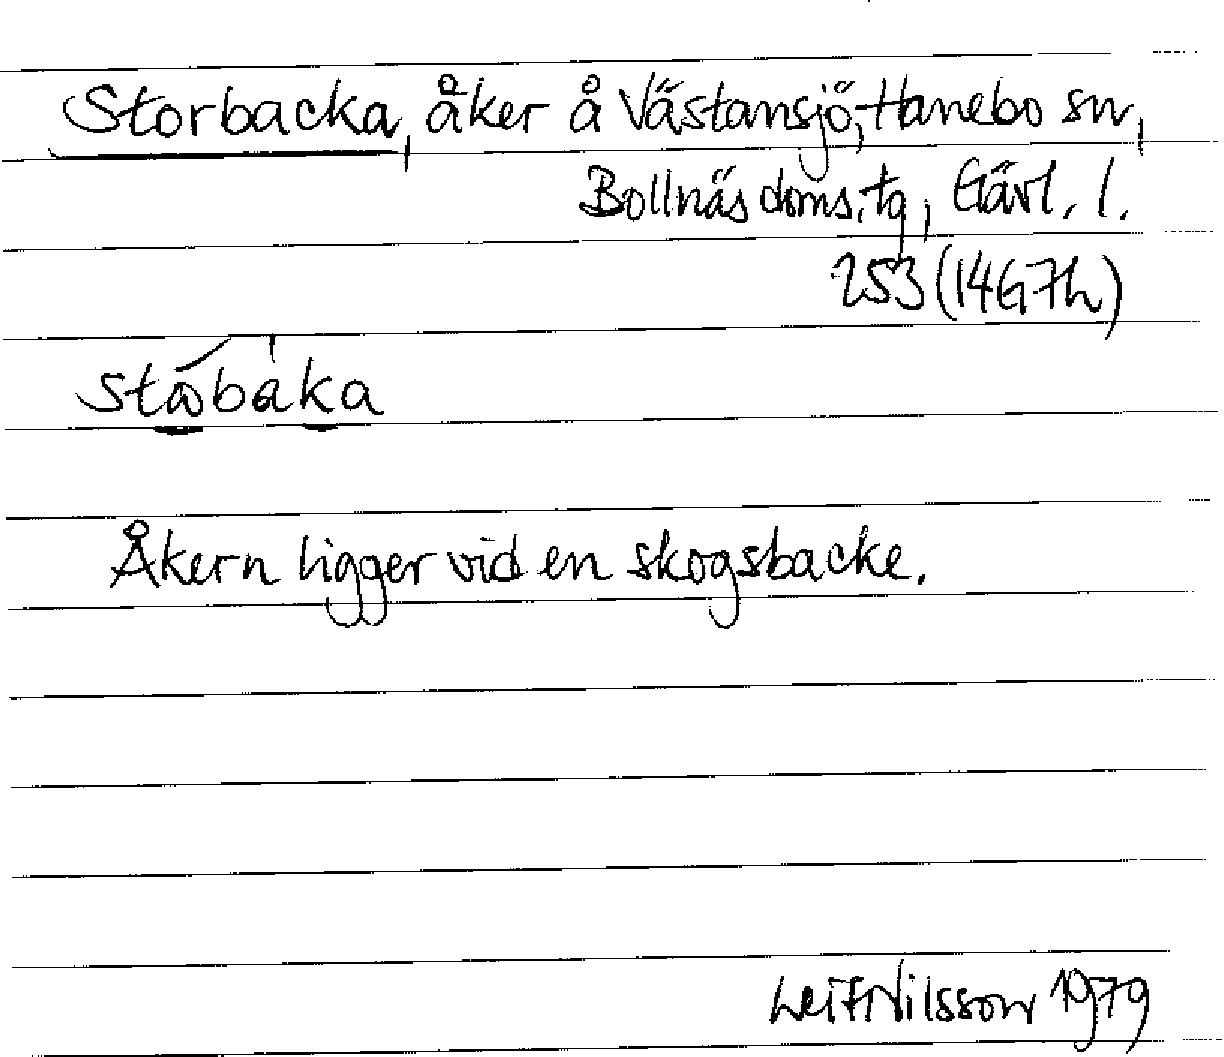 Storbacka, åker å Västansjö, Hanebo sn,
Bollnäs doms. tg, Gävl. l.
253 (14G7h)
Åkern ligger vid en skogsbacke.
Leif Nilsson 1979